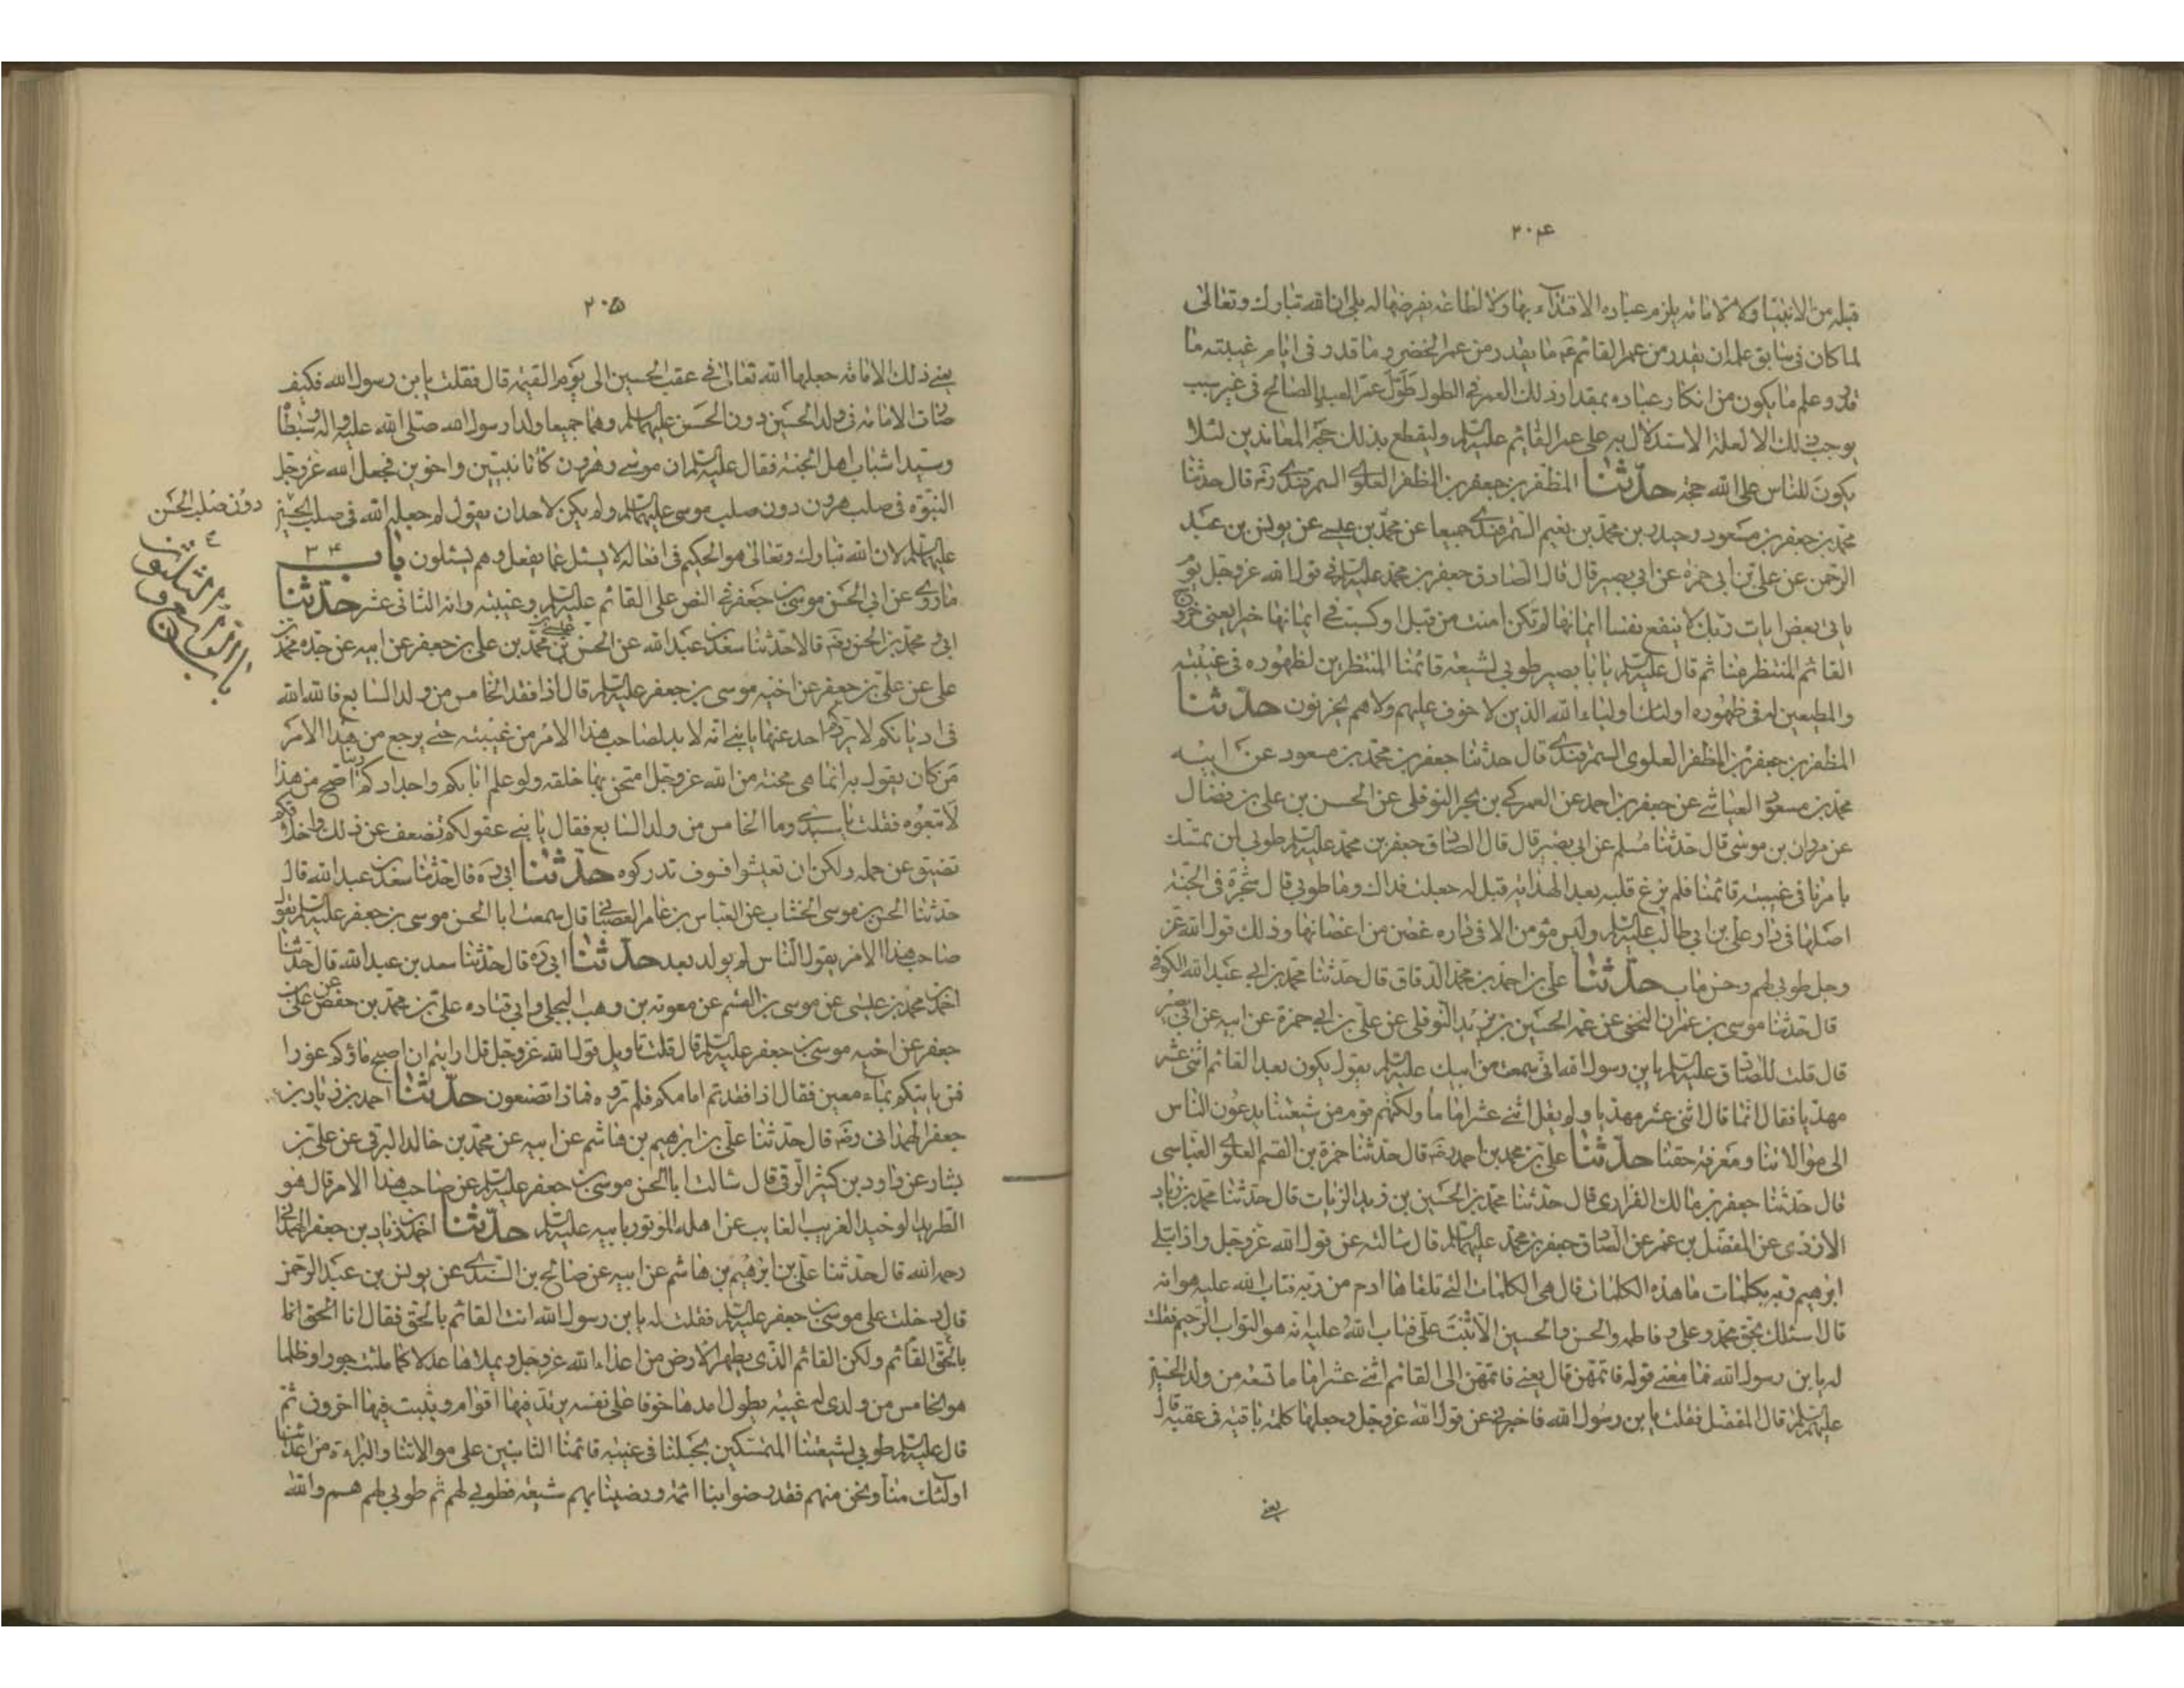 ٢٠۴
قبله من الانبیا ولا لامامة یلزم عباده الاقتداء بها ولا لطاعة یفرضها له بلی ان الله تبارک وتعالی
لما کان فی سابق علمه ان یقدر من عمر القائم ع ما یقدر من عمر الخضر وما قدر فی ایام غیبته ما
قدر وعلم ما یکون من انکار عباده بمقدار ذلک العمر فی الطول طوّل عمر العبد الصالح فی غیر سبب
یوجب ذلک الا لعلة الاستدلال به علی عمر القائم علیه السلام ولیقطع بذلک حجة المعاندین لئلا
یکون للناس علی الله حجة حدّثنا المظفر بن جعفر بن المظفر العلوی السمرقندی رضه قال حدثنا
محمد بن جعفر بن مسعود وحیدر بن محمد بن نعیم السمرقندی جمیعا عن محمد بن مسعود عن یونس بن عبد
الرحمن عن علی بن ابی حمزه عن ابی بصیر قال قال الصادق جعفر بن محمد علیه السلام فی قول الله عزوجل یوم
یاتی بعض ایات ربک لا ینفع نفسا ایمانها لم تکن امنت من قبل او کسبت فی ایمانها خیرا یعنی خروج
القائم المنتظر منا ثم قال علیه السلام یا با بصیر طوبی لشیعة قائمنا المنتظرین لظهوره فی غیبته
والمطیعین له فی ظهوره اولئک اولیاء الله الذین لا خوف علیهم ولا هم یحزنون حدّثنا
المظفر بن جعفر بن المظفر العلوی السمرقندی قال حدثنا جعفر بن محمد بن مسعود عن ابیه
محمد بن مسعود العیاشی عن جعفر بن احمد عن العمرکی بن بحر النوفلی عن الحسن بن علی بن فضال
عن مروان بن موسی قال حدثنا مسلم عن ابی بصیر قال قال الصادق جعفر بن محمد علیه السلام طوبی لمن تمسک
بامرنا فی غیبة قائمنا فلم یزغ قلبه بعد الهدایه قیل له جعلت فداک وما طوبی قال شجرة فی الجنة
اصلها فی دار علی بن ابی طالب علیه السلام ولیس مؤمن الا فی داره غصن من اغصانها وذلک قول الله عز
وجل طوبی لهم وحسن ماب حدّثنا علی بن احمد بن محمد الدقاق قال حدثنا محمد بن ابی عبد الله الکوفی
قال حدثنا موسی بن عمران النخعی عن عمه الحسین بن یزید النوفلی عن علی بن ابی حمزة عن ابیه عن ابی بصیر
قال قلت للصادق علیه السلام یابن رسول الله انی سمعت من ابیک علیه السلام یقول یکون بعد القائم اثنی عشر
مهدیا فقال انما قال اثنی عشر مهدیا ولم یقل اثنی عشر اماما ولکنهم قوم من شیعتنا یدعون الناس
الی موالاتنا ومعرفة حقنا حدّثنا علی بن محمد بن احمد رضه قال حدثنا حمزة بن القسم العلوی العباسی
قال حدثنا جعفر بن مالک الفزاری قال حدثنا محمد بن الحسین بن زید الزیات قال حدثنا محمد بن زیاد
الازدی عن المفضل بن عمر عن الصادق جعفر بن محمد علیهما السلام قال سالته عن قول الله عزوجل واذ ابتلی
ابرهیم ربه بکلمات ما هذه الکلمات قال هی الکلمات التی تلقاها ادم من ربه فتاب الله علیه هو انه
قال اسئلک بحق محمد وعلی وفاطمه والحسن والحسین الا تبت علی فتاب الله علیه انه هو التواب الرحیم فقلت
له یابن رسول الله فما معنی قوله فاتمهن قال یعنی فاتمهن الی القائم اثنی عشر اماما تسعة من ولد الحسین
علیهم السلام قال المفضل فقلت یابن رسول الله فاخبرنی عن قول الله عزوجل وجعلها کلمة باقیة فی عقبه قال
یعنی
٢٠۵
یعنی ذلک الامامة جعلها الله تعالی فی عقب الحسین الی یوم القیمة قال فقلت یابن رسول الله فکیف
صارت الامامة فی ولد الحسین دون الحسن علیهما السلام وهما جمیعا ولدا رسول الله صلی الله علیه واله وسبطا
وسیدا شباب اهل الجنة فقال علیه السلام ان موسی وهرون کانا نبیین واخوین فجعل الله عزوجل
النبوة فی صلب هرون دون صلب موسی علیهما السلام ولم یکن لاحد ان یقول لم جعله الله فی صلب الحسین
دون صلب الحسن
علیهما السلام لان الله تبارک وتعالی هو الحکیم فی افعاله لا یسئل عما یفعل وهم یسئلون باب ٣۴
ماروی عن ابی الحسن موسی بن جعفر فی النص علی القائم علیه السلام وغیبته وانه الثانی عشر حدّثنا
ابی ومحمد بن الحسن رضه قالا حدثنا سعد بن عبد الله عن الحسن بن محمد بن علی بن جعفر عن ابیه عن جده محمد بن
علی عن علی بن جعفر عن اخیه موسی بن جعفر علیه السلام قال اذا فقد الخامس من ولد السابع فالله الله
فی ادیانکم لا یزیلکم احد عنها یا بنی انه لا بد لصاحب هذا الامر من غیبته حتی یرجع من هذا الامر
من کان یقول به انما هی محنة من الله عزوجل امتحن بها خلقه ولو علم اباؤکم واجدادکم دینا اصح من هذا
لاتبعوه فقلت یا سیدی وما الخامس من ولد السابع فقال یا بنی عقولکم تضعف عن ذلک واحلامکم
تضیق عن حمله ولکن ان تعیشوا فسوف تدرکوه حدّثنا ابی ره قال حدثنا سعد بن عبد الله قال
حدثنا الحسن بن موسی الخشاب عن العباس بن عامر القصبانی قال سمعت ابا الحسن موسی بن جعفر علیه السلام یقول
صاحب هذا الامر یقول الناس لم یولد بعد حدّثنا ابی ره قال حدثنا سعد بن عبد الله قال حدثنا
احمد بن محمد بن عیسی عن موسی بن القسم عن معویة بن وهب البجلی وابی قتاده علی بن محمد بن حفص عن علی بن
جعفر عن اخیه موسی بن جعفر علیه السلام قال قلت تاویل قول الله عزوجل قل ارایتم ان اصبح ماؤکم غورا
فمن یاتیکم بماء معین فقال اذا فقدتم امامکم فلم تروه فماذا تصنعون حدّثنا احمد بن زیاد بن
جعفر الهمدانی رضه قال حدثنا علی بن ابرهیم بن هاشم عن ابیه عن محمد بن خالد البرقی عن علی بن
بشار عن داود بن کثیر الرقی قال سالت ابا الحسن موسی بن جعفر علیه السلام عن صاحب هذا الامر قال هو
الطرید الوحید الغریب الغایب عن اهله الموتور بابیه علیه السلام حدّثنا احمد بن زیاد بن جعفر الهمدانی
رحمه الله قال حدثنا علی بن ابرهیم بن هاشم عن ابیه عن صالح بن السندی عن یونس بن عبد الرحمن
قال دخلت علی موسی بن جعفر علیه السلام فقلت له یابن رسول الله انت القائم بالحق فقال انا الحق انا
بالحق القائم ولکن القائم الذی یطهر الارض من اعداء الله عزوجل ویملاها عدلا کما ملئت جورا وظلما
هو الخامس من ولدی له غیبة یطول امدها خوفا علی نفسه یرتد فیها اقوام ویثبت فیها اخرون ثم
قال علیه السلام طوبی لشیعتنا المتمسکین بحبلنا فی غیبة قائمنا الثابتین علی موالاتنا والبراءة من اعدائنا
اولئک منا ونحن منهم فقد رضوا بنا ائمة ورضینا بهم شیعة فطوبی لهم ثم طوبی لهم هم والله